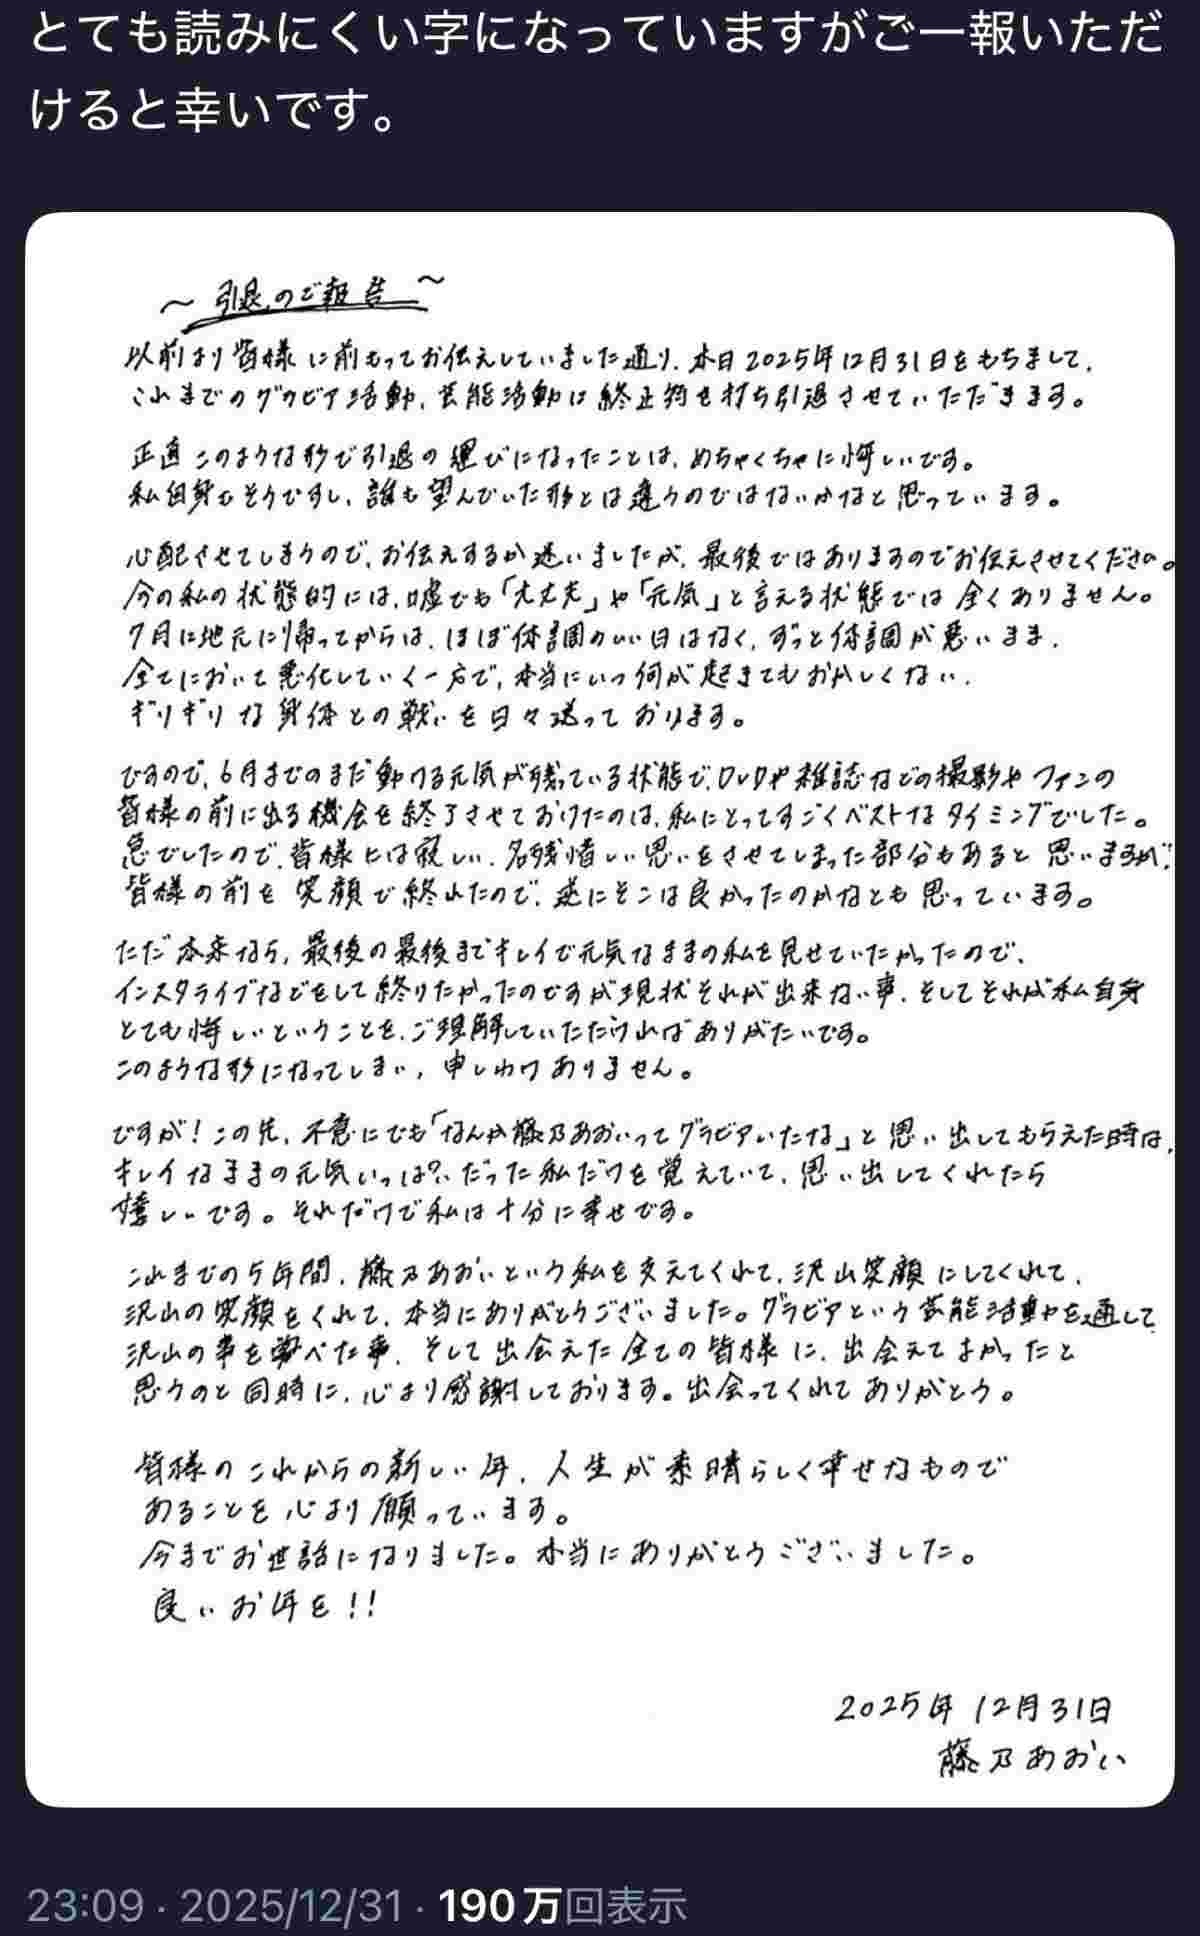 とても読みにくい字になっていますがご一報いただ
けると幸いです。
～引退のご報告～
以前より皆様に前もってお伝えしていました通り、本日2025年12月31日をもちまして、
これまでのグラビア活動、芸能活動に終止符を打ち引退させていただきます。
正直このような形で引退の運びになったことは、めちゃくちゃに悔しいです。
私自身もそうですし、誰も望んでいた形とは違うのではないかなと思っています。
心配させてしまうので、お伝えするか迷いましたが、最後ではありますのでお伝えさせてください。
今の私の状態的には、嘘でも「大丈夫」や「元気」と言える状態では全くありません。
7月に地元に帰ってからは、ほぼ体調のいい日はなく、ずっと体調が悪いまま、
全てにおいて悪化していく一方で、本当にいつ何が起きてもおかしくない、
ギリギリな身体との戦いを日々送っております。
ですので、6月までのまだ動ける元気が残っている状態で、DVDや雑誌などの撮影やファンの
皆様の前に出る機会を終了させておけたのは、私にとってすごくベストなタイミングでした。
急でしたので、皆様には寂しい、名残惜しい思いをさせてしまった部分もあると思いますが、
皆様の前を笑顔で終れたので、逆にそこは良かったのかなとも思っています。
ただ本来なら、最後の最後までキレイで元気なままの私を見せていたかったので、
インスタライブなどをして終りたかったのですが現状それが出来ない事、そしてそれが私自身
とても悔しいということを、ご理解していただければありがたいです。
このような形になってしまい、申しわけありません。
ですが！この先、不意にでも「なんか藤乃あおいってグラビアいたな」と思い出してもらえた時は、
キレイなままの元気いっぱい、だった私だけを覚えていて、思い出してくれたら
嬉しいです。それだけで私は十分に幸せです。
これまでの5年間、藤乃あおいという私を支えてくれて、沢山笑顔にしてくれて、
沢山の笑顔をくれて、本当にありがとうございました。グラビアという芸能活動を通して
沢山の事を学べた事、そして出会えた全ての皆様に、出会えてよかったと
思うのと同時に、心より感謝しております。出会ってくれてありがとう。
皆様のこれからの新しい年、人生が素晴らしく幸せなもので
あることを心より願っています。
今までお世話になりました。本当にありがとうございました。
良いお年を！！
2025年12月31日
藤乃あおい
23:09 · 2025/12/31 · 190万回表示